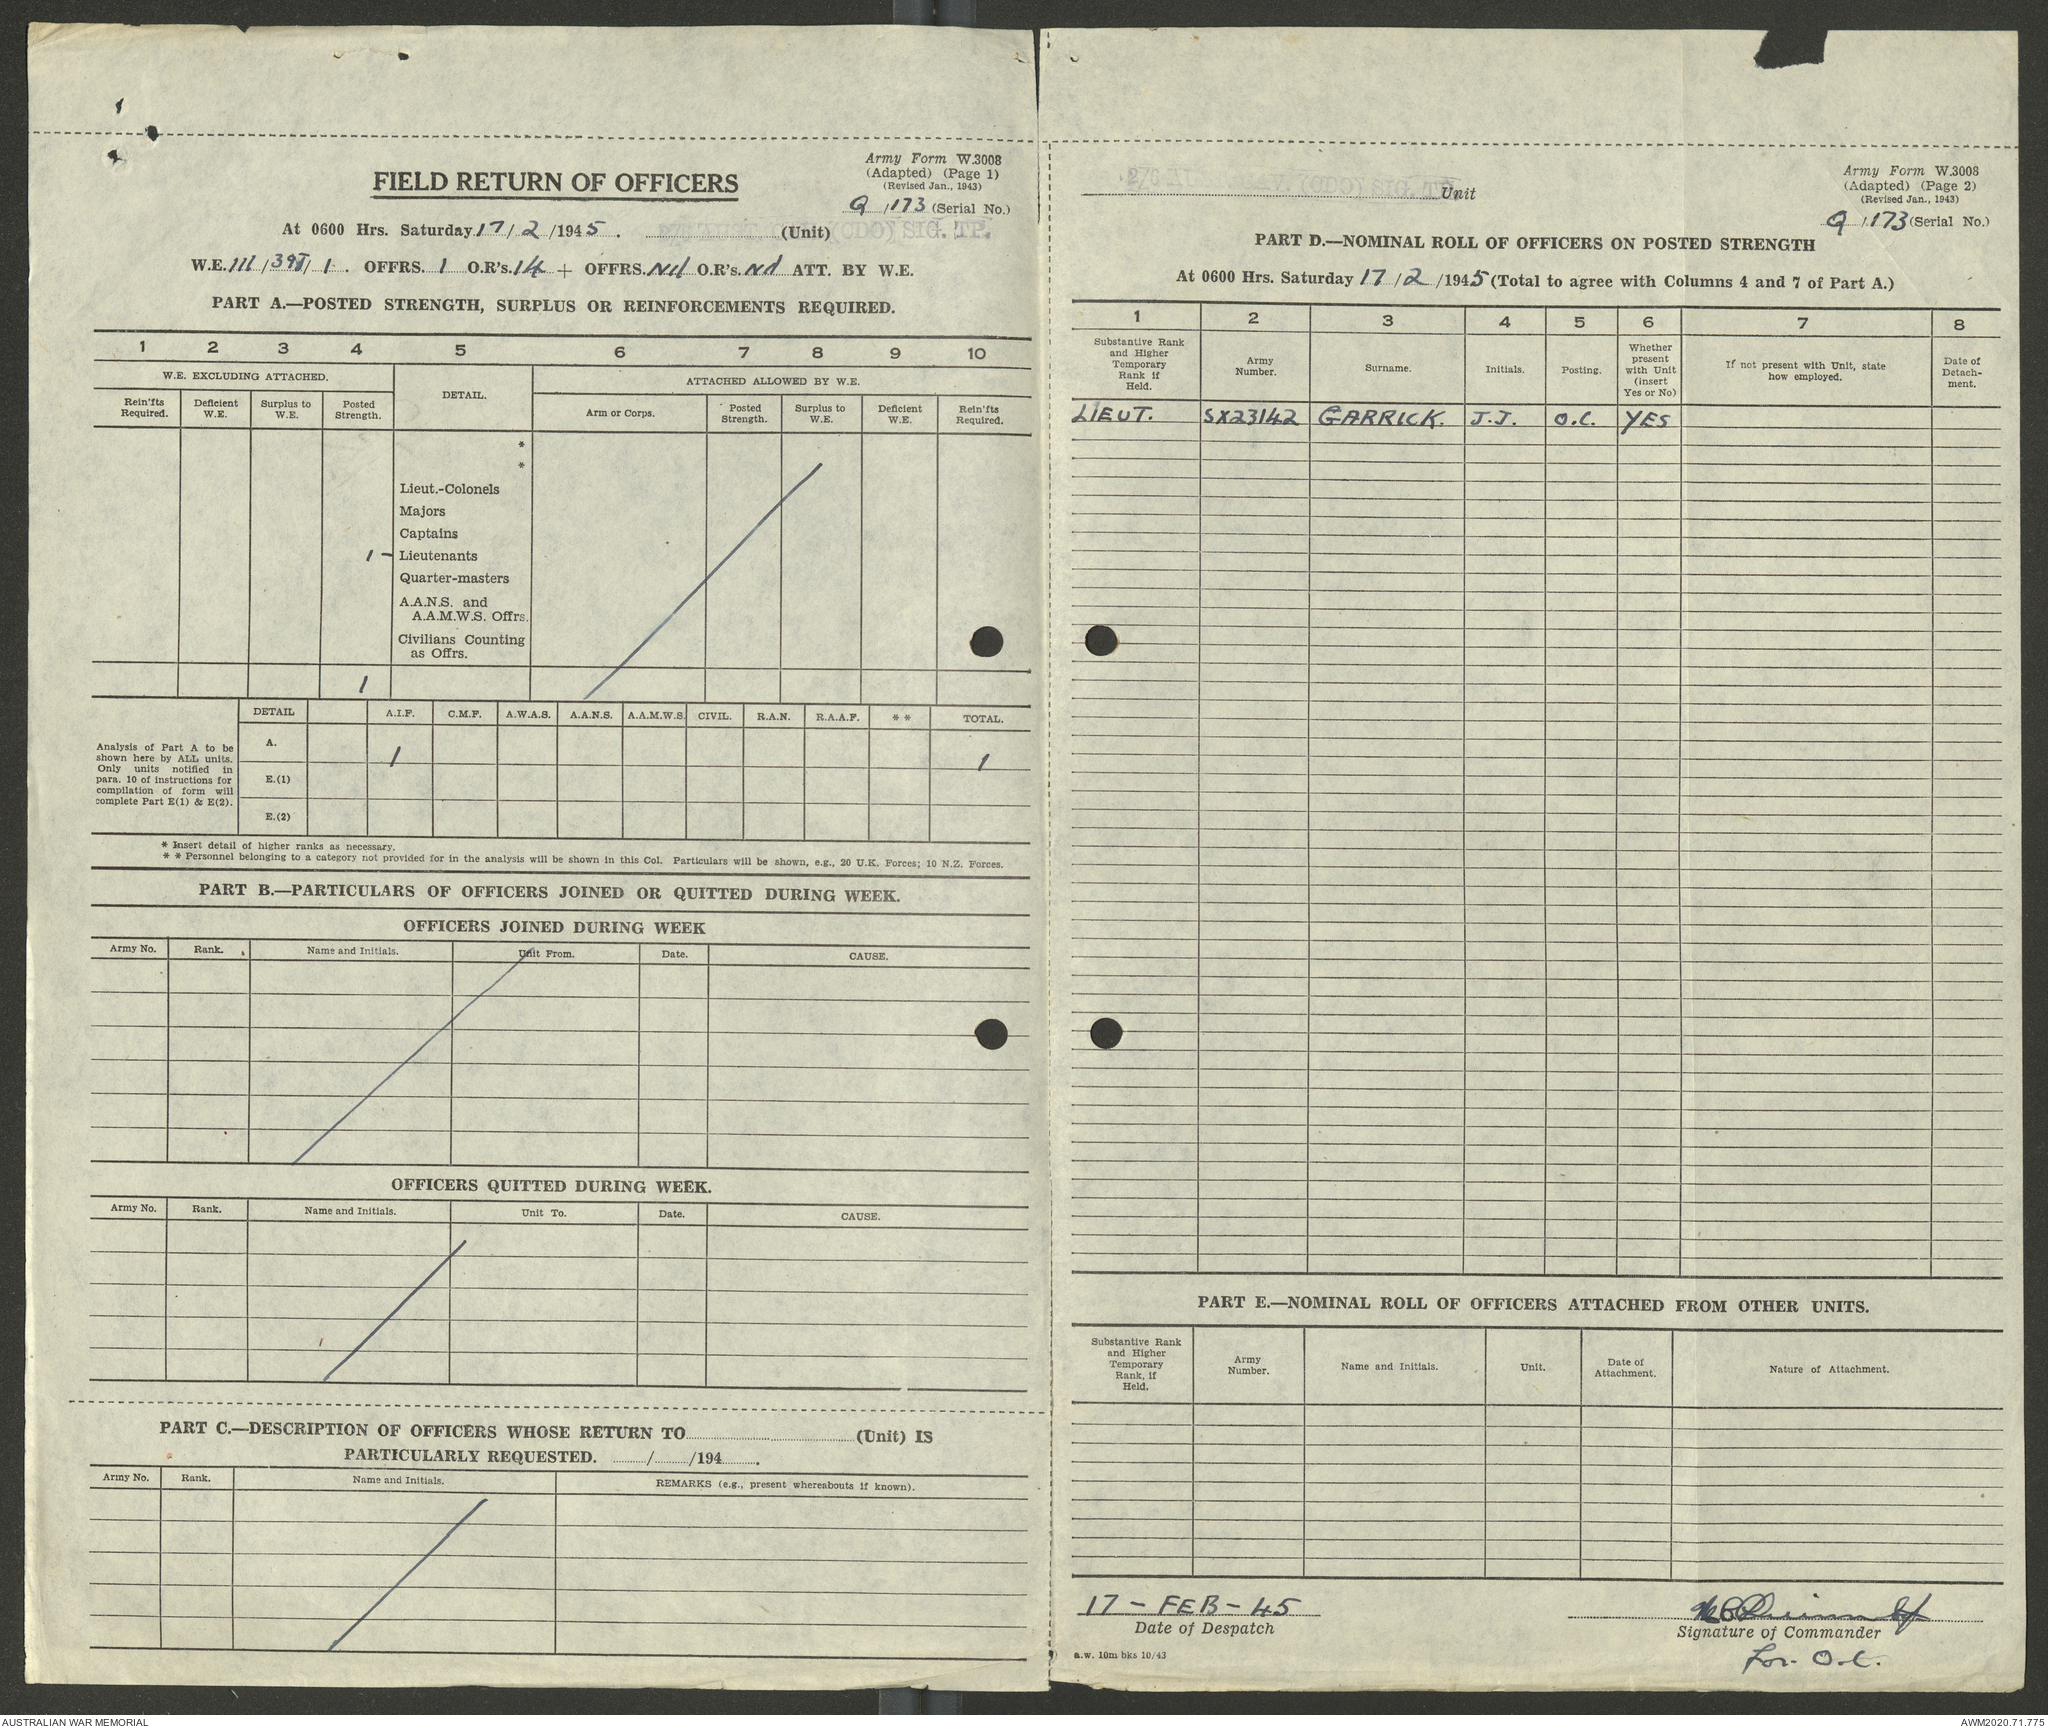 Army Form W.3008
(Adapted) (Page 1)
(Revised Jan., 1943)
FIELD RETURN OF OFFICERS
Q/173 (Serial No.)
At 0600 Hrs. Saturday 17/2/1945. (CDO) SIG. TP. (Unit)
W.E. III/39J/1. OFFRS. 1 O.R's. 14 + OFFRS. Nil O.R's. Nil ATT. BY W.E.
PART A.—POSTED STRENGTH, SURPLUS OR REINFORCEMENTS REQUIRED.
1 2 3 4 5 6 7 8 9 10
W.E. EXCLUDING ATTACHED. DETAIL. ATTACHED ALLOWED BY W.E.
Rein'fts Required. Deficient W.E. Surplus to W.E. Posted Strength. Arm or Corps. Posted Strength. Surplus to W.E. Deficient W.E. Rein'fts Required.
*
*
Lieut.-Colonels
Majors
Captains
1 – Lieutenants
Quarter-masters
A.A.N.S. and
A.A.M.W.S. Offrs.
Civilians Counting
as Offrs.
1
DETAIL A.I.F. C.M.F. A.W.A.S. A.A.N.S. A.A.M.W.S. CIVIL. R.A.N. R.A.A.F. * * TOTAL.
Analysis of Part A to be
shown here by ALL units.
Only units notified in
para. 10 of instructions for
compilation of form will
complete Part E(1) & E(2).
A. 1 1
E.(1)
E.(2)
* Insert detail of higher ranks as necessary.
* * Personnel belonging to a category not provided for in the analysis will be shown in this Col. Particulars will be shown, e.g., 20 U.K. Forces; 10 N.Z. Forces.
PART B.—PARTICULARS OF OFFICERS JOINED OR QUITTED DURING WEEK.
OFFICERS JOINED DURING WEEK
Army No. Rank. Name and Initials. Unit From. Date. CAUSE.
OFFICERS QUITTED DURING WEEK.
Army No. Rank. Name and Initials. Unit To. Date. CAUSE.
PART C.—DESCRIPTION OF OFFICERS WHOSE RETURN TO (Unit) IS
PARTICULARLY REQUESTED. / /194 .
Army No. Rank. Name and Initials. REMARKS (e.g., present whereabouts if known).
Army Form W.3008
(Adapted) (Page 2)
(Revised Jan., 1943)
(CDO) SIG. TP. Unit
Q/173 (Serial No.)
PART D.—NOMINAL ROLL OF OFFICERS ON POSTED STRENGTH
At 0600 Hrs. Saturday 17/2/1945 (Total to agree with Columns 4 and 7 of Part A.)
1 2 3 4 5 6 7 8
Substantive Rank and Higher Temporary Rank if Held. Army Number. Surname. Initials. Posting. Whether present with Unit (insert Yes or No) If not present with Unit, state how employed. Date of Detach-ment.
LIEUT. SX23142 GARRICK. J.J. O.C. YES
PART E.—NOMINAL ROLL OF OFFICERS ATTACHED FROM OTHER UNITS.
Substantive Rank and Higher Temporary Rank, if Held. Army Number. Name and Initials. Unit. Date of Attachment. Nature of Attachment.
17 – FEB – 45
Date of Despatch
Signature of Commander
For O.C.
a.w. 10m bks 10/43
AUSTRALIAN WAR MEMORIAL
AWM2020.71.775